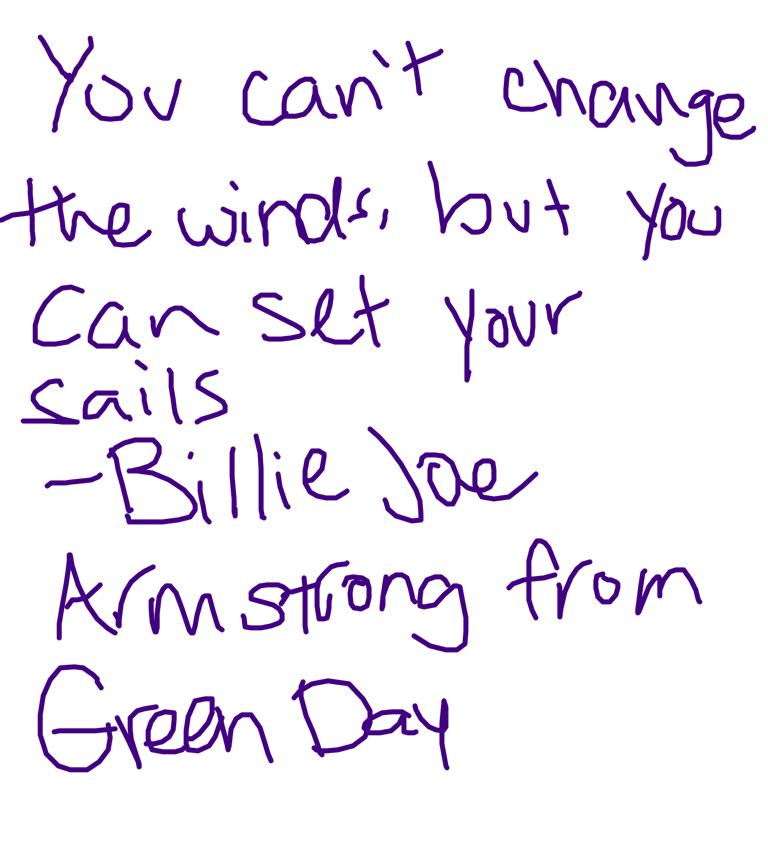 You can't change
the winds, but you
can set your
sails
-Billie Joe
Armstrong from
Green Day